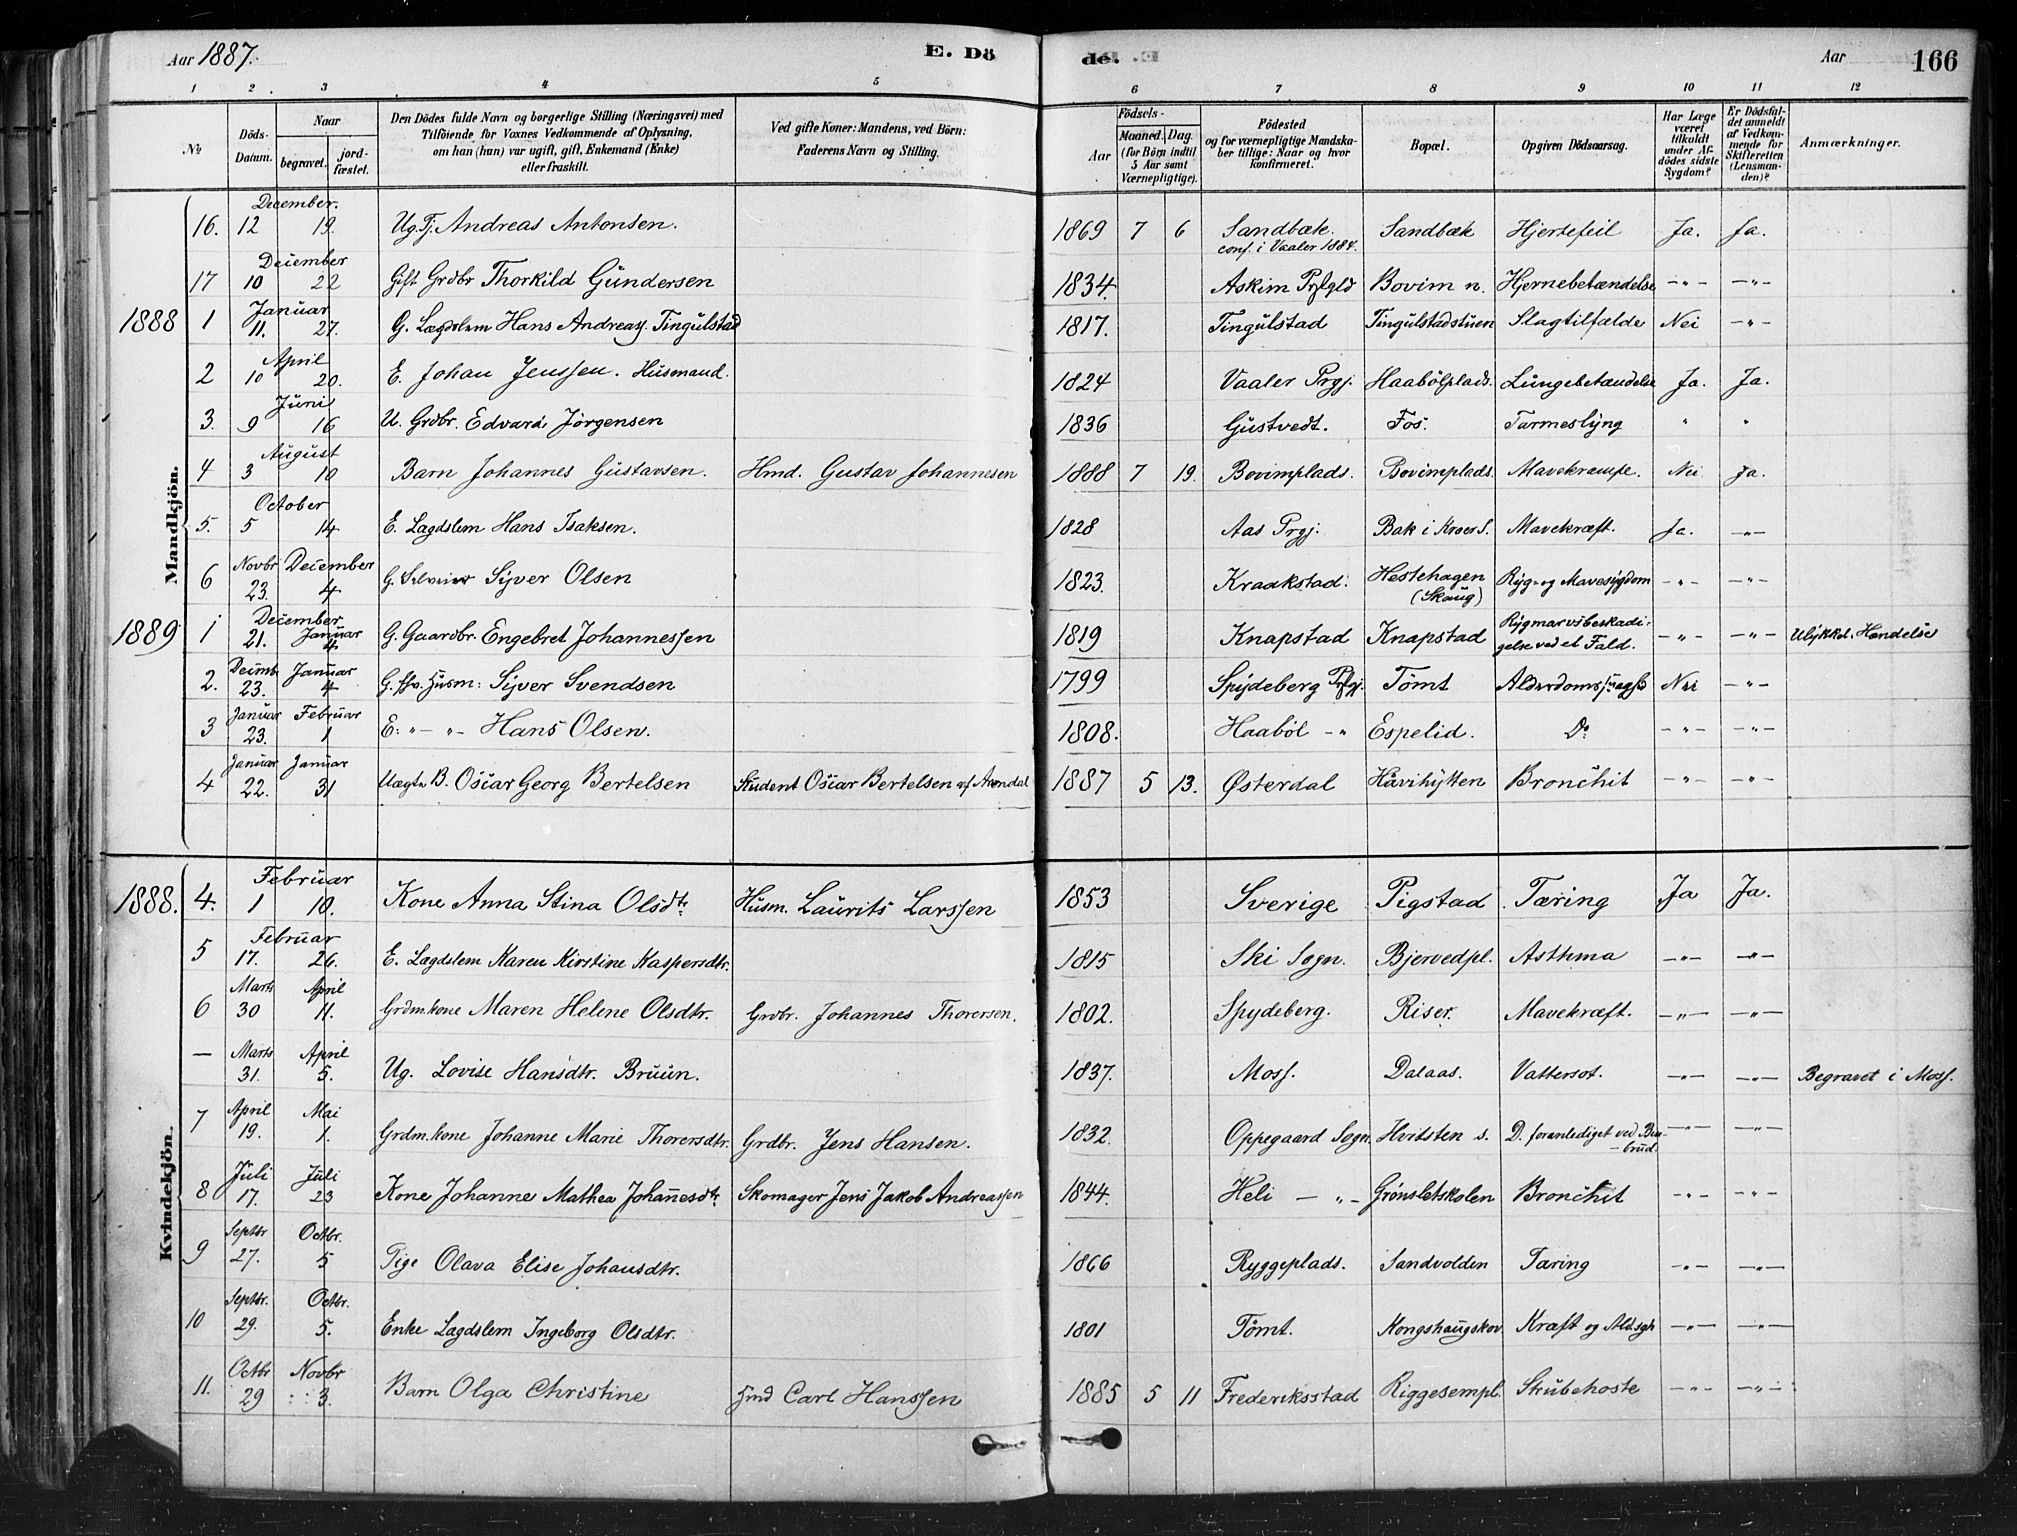 Aar 1887. E. Dö de. Aar 166
1 2. 3 4 5 6 7 8 9 10 11 12
№ Döds-Datum. Naar begravet. jordfæstet. Den Dödes fulde Navn og borgerlige Stilling (Næringsvei) med Tilföiende for Voxnes Vedkommende af Oplysning, om han (hun) var ugift, gift, Enkemand (Enke) eller fraskilt. Ved gifte Koner: Mandens, ved Börn: Faderens Navn og Stilling. Födsels- Aar Maaned. Dag. (for Börn indtil 5 Aar samt Værnepligtige). Födested og for værnepligtige Mandskaber tillige: Naar og hvor konfirmeret. Bopæl. Opgiven Dödsaarsag. Har Læge været tilkaldt under Afdödes sidste Sygdom? Er Dödsfaldet anmeldt af Vedkommende for Skifteretten (Lensmanden)? Anmærkninger.
Mandkjön.
December.
16. 12 19. Ug. Tj. Andreas Antonsen. 1869 7 6 Sandbæk. conf. i Vaaler 1884. Sandbæk Hjertefeil Ja. Ja.
December
17 10 22 Gift Grdbr Thorkild Gundersen 1834. Askim Prgld Bovim n. Hjernebetændelse -"- -"-
Januar
1888 1 11. 27. G. Lægdslem Hans Andreass. Tingulstad 1817. Tingulstad Tingulstadstuen Slagtilfælde Nei -"-
April
2 10 20. E. Johan Jenssen. Husmand. 1824 Vaaler Prgj. Haabölplads. Lungebetændelse Ja. Ja.
Juni
3. 9 16 U. Grdbr. Edvard Jörgensen 1836 Gustvedt. Fos. Tarmeslyng " "
August
4 3 10 Barn Johannes Gustavsen. Hmd. Gustav Johannesen 1888 7 19. Bovimplads. Bovimplads. Mavekrampe. Nei Ja.
October
5. 5 14 E. Lægdslem Hans Isaksen. 1828 Aas Prgj. Bak i Kroer S. Mavekræft. Ja. -"-
Novbr December
6 23. 4 G. Sijver Olsen 1823. Kraakstad. Hestehagen (Skaug) Ryg- og Mavesygdom -"- -"-
December Januar
1889 1 21. 4 G. Gaardbr. Engebret Johannessen 1819 Knapstad Knapstad Rygmarvsbeskadigelse ved et Fald. -"- -"- Ulykkel. Hændelse
Decmb. Januar
2. 23. 4 G. fhv. Husm: Sijver Svendsen 1799 Spydeberg Prgj. Tömt Alderdomssvaghd Nei -"-
Januar Februar
3 23. 1 E: "-"- Hans Olsen. 1808. Haaböl -" Espelid. Do -"- -"-
Januar Januar
4 22. 31 Uægte B. Oscar Georg Bertelsen Student Oscar Bertelsen af Arendal 1887 5 13. Østerdal Håvihytten Bronchit -"- -"-
Kvindekjön.
Februar
1888. 4. 1 10. Kone Anna Stina Olsdtr Husm. Laurits Larssen 1853 Sverige Pigstad Tæring Ja Ja.
Februar
5 17. 26. E. Lægdslem Karen Kirstine Kaspersdtr. 1815 Ski Sogn. Bjervedpl. Asthma -"- -"-
Marts April
6 30 11. Grdm.kone Maren Helene Olsdtr. Grdbr. Johannes Thorersen. 1802. Spydeberg. Riser. Mavekræft. -"- -"-
Marts April
— 31. 5. Ug. Lovise Hansdtr. Bruun. 1837. Moss. Dalaas. Vattersot. -"- -"- Begravet i Moss.
April Mai
7 19. 1. Grdm.kone Johanne Marie Thorersdtr. Grdbr. Jens Hansen. 1832. Oppegaard Sogn. Hvitsten s. D. foranlediget ved Benbrud. -"- -"-
Juli Juli
8 17. 23 Kone Johanne Mathea Johannesdtr Skomager Jens Jakob Andreassen 1844. Heli — "- Grönsletskolen Bronchit -"- -"-
Septbr Octbr.
9 27. 5 Pige Olava Elise Johansdtr. 1866 Ryggeplads. Sandvolden Tæring -"- -"-
Septbr. Octbr.
10 29. 5. Enke Lægdslem Ingeborg Olsdtr. 1801 Tömt. Kongshaugskov Kræft og Ald.sgh -"- -"-
Octbr Novbr
11. 29 3. Barn Olga Christine Hmd Carl Hanssen 1885 5 11 Frederiksstad Riggesempl. Strubehoste -"- -"-